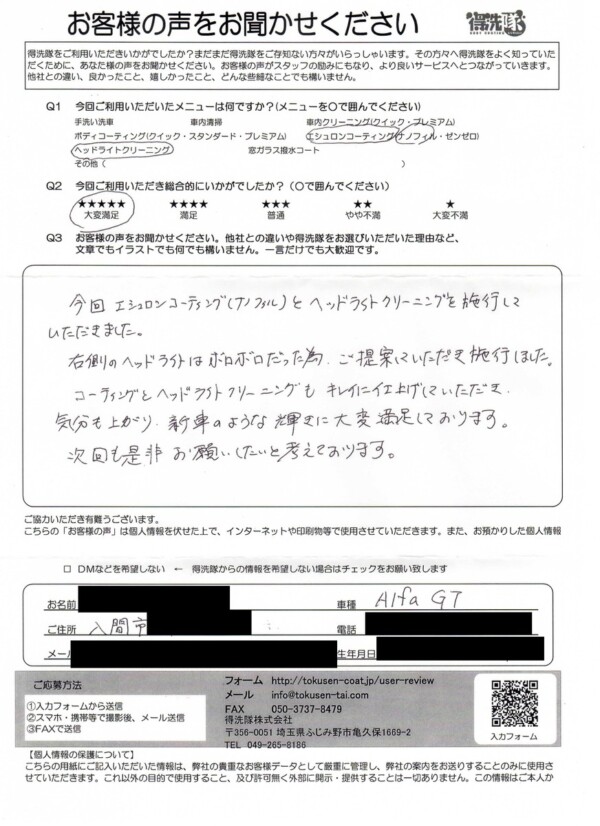 お客様の声をお聞かせください
得洗隊
得洗隊をご利用いただきいかがでしたか?まだまだ得洗隊をご存知ない方々がいらっしゃいます。その方々へ得洗隊をよく知っていた
だくために、あなた様の声をお聞かせください。お客様の声がスタッフの励みにもなり、より良いサービスへとつながっていきます。
他社との違い、良かったこと、嬉しかったこと、どんな些細なことでも構いません。
Q1 今回ご利用いただいたメニューは何ですか?(メニューを○で囲んでください)
手洗い洗車 車内清掃 車内クリーニング(クイック・プレミアム)
ボディコーティング(クイック・スタンダード・プレミアム) エシュロンコーティング(ナノフィル・ゼンゼロ)
ヘッドライトクリーニング 窓ガラス撥水コート
その他( )
Q2 今回ご利用いただき総合的にいかがでしたか?(○で囲んでください)
★★★★★ ★★★★ ★★★ ★★ ★
大変満足 満足 普通 やや不満 大変不満
Q3 お客様の声をお聞かせください。他社との違いや得洗隊をお選びいただいた理由など、
文章でもイラストでも何でも構いません。一言だけでも大歓迎です。
今回エシュロンコーティング(ナノフィル)とヘッドライトクリーニングを施行して
いただきました。
右側のヘッドライトはボロボロだった為、ご提案していただき施行しました。
コーティングとヘッドライトクリーニングもキレイに仕上げていただき、
気分も上がり、新車のような輝きに大変満足しております。
次回も是非お願いしたいと考えております。
ご協力いただき有難うございます。
こちらの「お客様の声」は個人情報を伏せた上で、インターネットや印刷物等で使用させていただきます。また、お預かりした個人情報
□ DMなどを希望しない ← 得洗隊からの情報を希望しない場合はチェックをお願い致します
お名前 車種 Alfa GT
ご住所 入間市 電話
メール 生年月日
ご応募方法
①入力フォームから送信
②スマホ・携帯等で撮影後、メール送信
③FAXで送信
フォーム http://tokusen-coat.jp/user-review
メール info@tokusen-tai.com
FAX 050-3737-8479
得洗隊株式会社
〒356-0051 埼玉県ふじみ野市亀久保1669-2
TEL 049-265-8186
入力フォーム
【個人情報の保護について】
こちらの用紙にご記入いただいた情報は、弊社の貴重なお客様データとして厳重に管理し、弊社の案内をお送りすることのみに使用
させていただきます。これ以外の目的で使用すること、及び許可無く外部に開示・提供することは一切ありません。この情報はご本人か